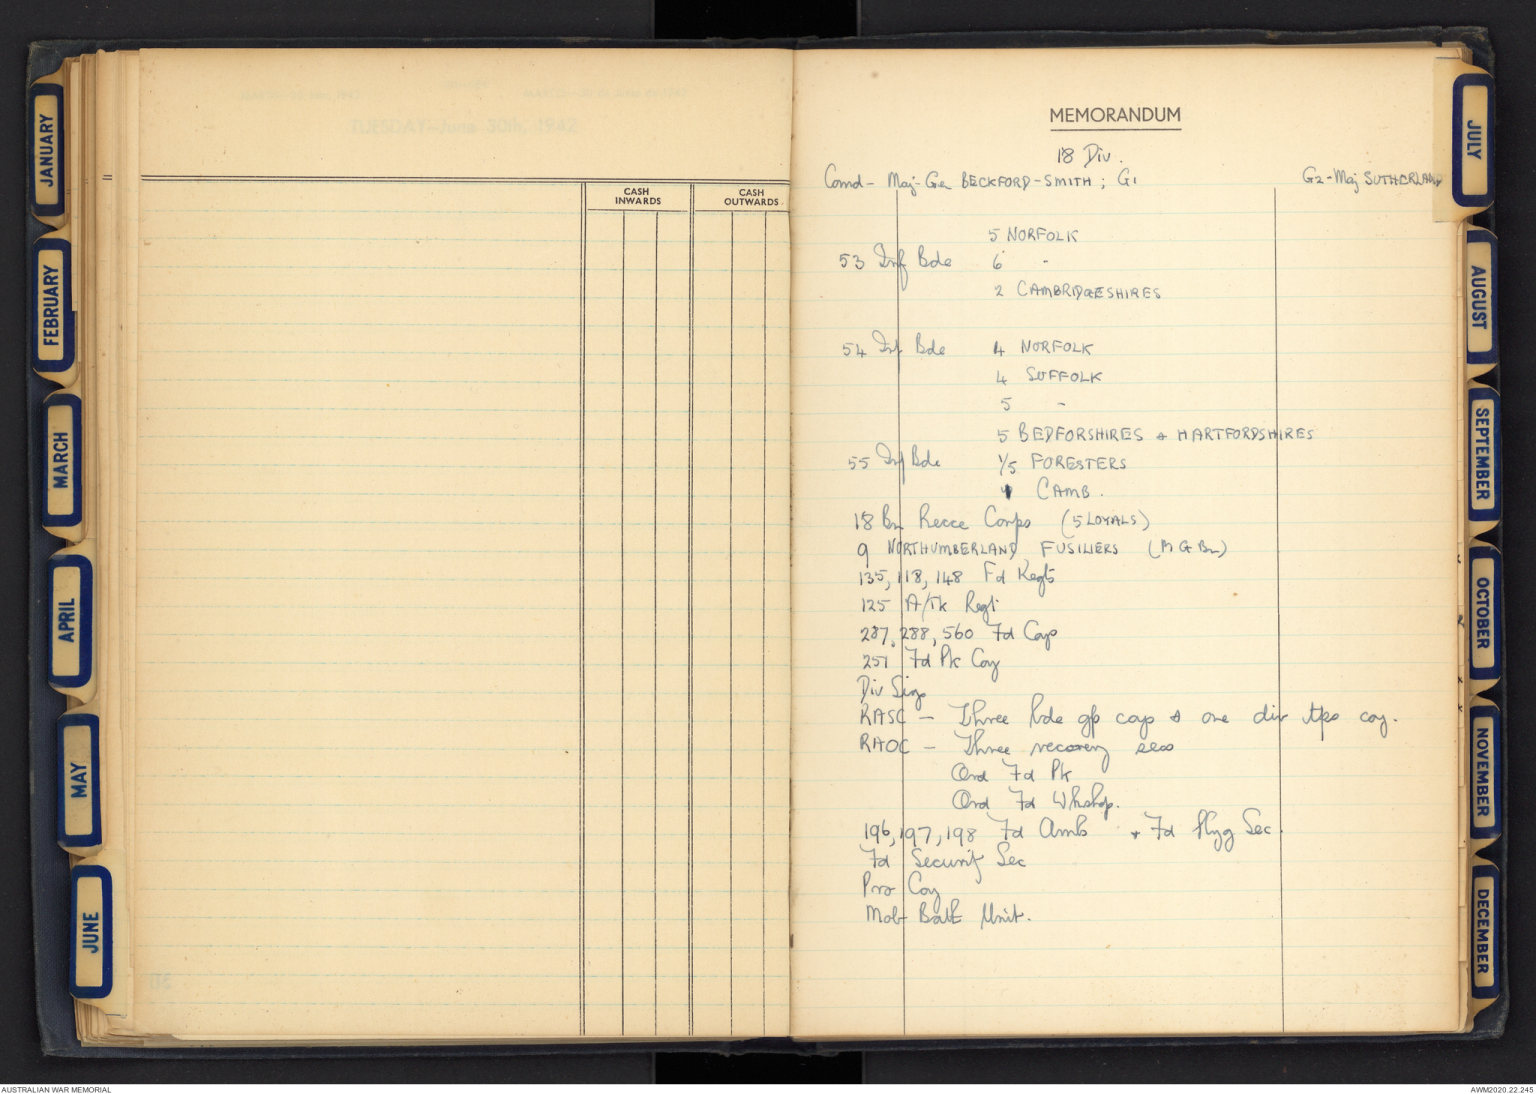 JANUARY
FEBRUARY
MARCH
APRIL
MAY
JUNE
TUESDAY—June 30th, 1942
CASH INWARDS
CASH OUTWARDS
30
MEMORANDUM
18 Div.
Comd - Maj-Gen BECKFORD-SMITH; G1 G2-Maj SUTHERLAND
5 NORFOLK
53 Inf Bde 6 "
2 CAMBRIDGESHIRES
54 Inf Bde 4 NORFOLK
4 SUFFOLK
5 "
5 BEDFORSHIRES + HARTFORDSHIRES
55 Inf Bde 1/5 FORESTERS
1 CAMB.
18 Bn Recce Corps (5 LOYALS)
9 NORTHUMBERLAND FUSILIERS (M G Bn)
135, 118, 148 Fd Regts
125 A/Tk Regt
287, 288, 560 Fd Coys
251 Fd Pk Coy
Div Sigs
RASC - Three bde gp coys & one div tps coy.
RAOC - Three recovery secs
Ord Fd Pk
Ord Fd Wkshop.
196, 197, 198 Fd Amb + Fd Hyg Sec.
Fd Security Sec
Pro Coy
Mob Bath Unit.
JULY
AUGUST
SEPTEMBER
OCTOBER
NOVEMBER
DECEMBER
AUSTRALIAN WAR MEMORIAL
AWM2020.22.245